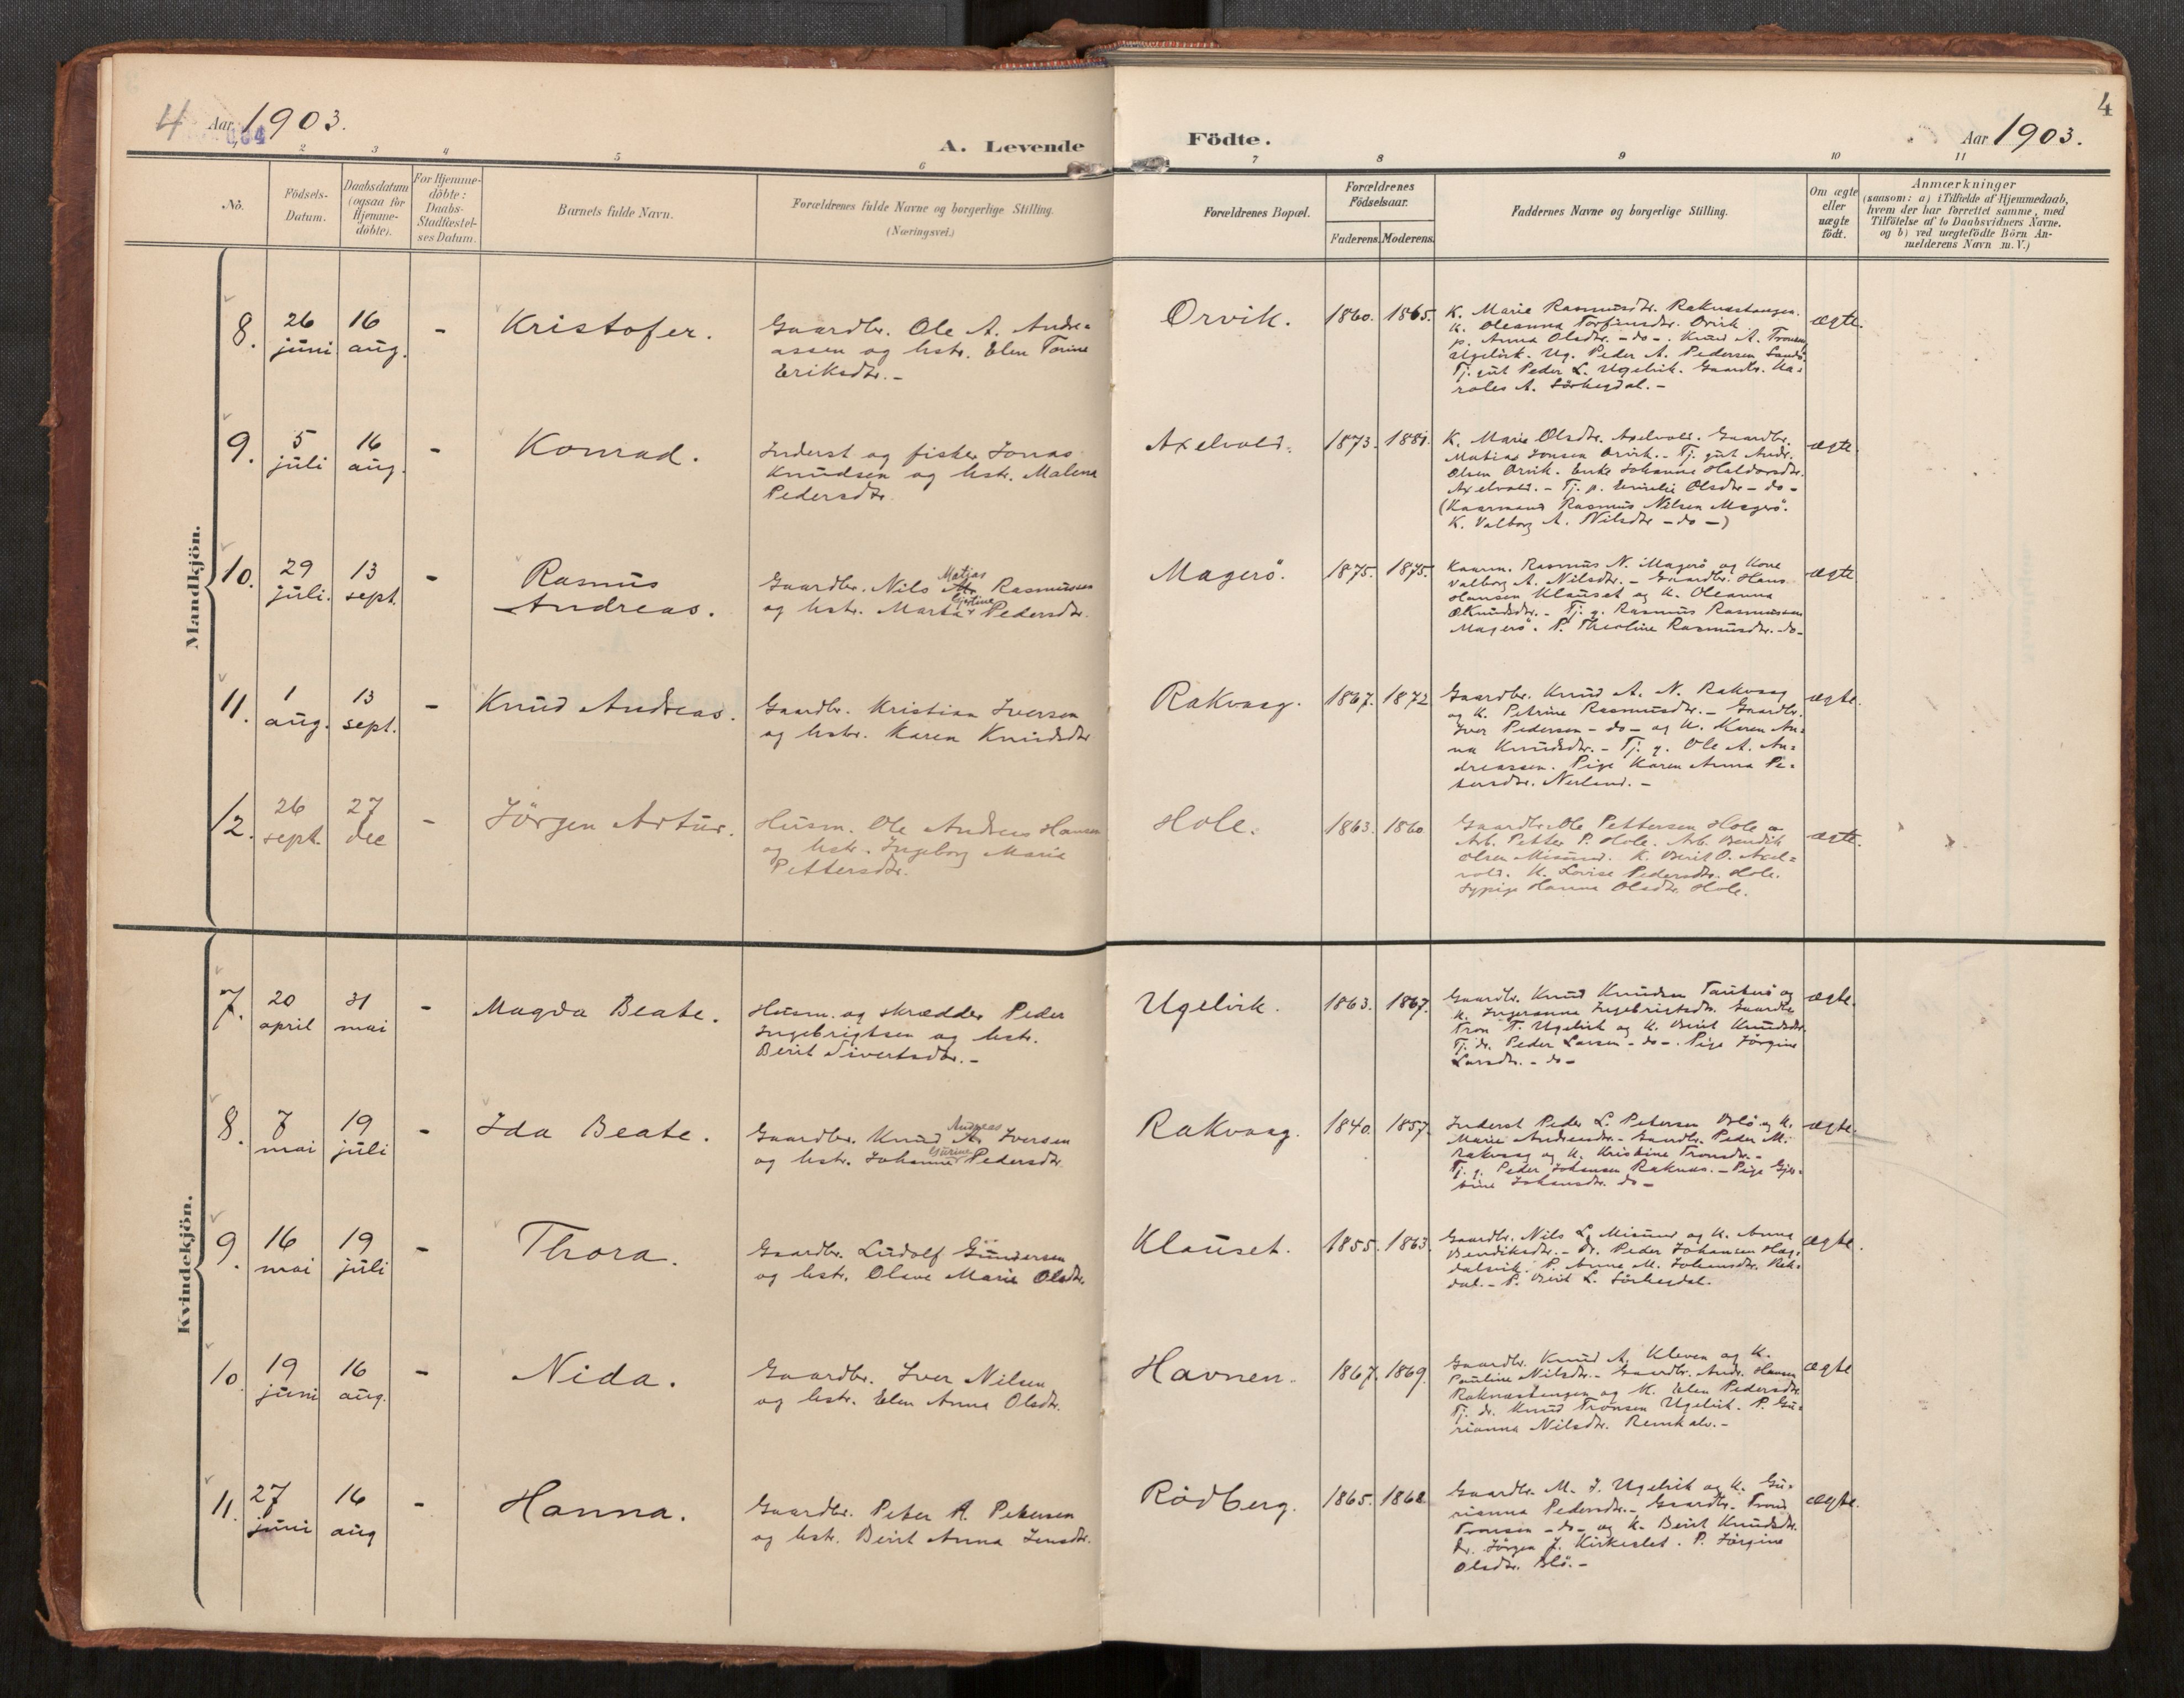 4 Aar 1903.
004
A. Levende
Födte.
Aar 1903.
4
2 3 4 5 6 7 8 9 10 11
No.
Födsels-
Datum.
Daabsdatum
(ogsaa for
Hjemme-
döbte).
For Hjemme-
döbte:
Daabs-
Stadfæstel-
ses Datum.
Barnets fulde Navn.
Forældrenes fulde Navne og borgerlige Stilling.
(Næringsvei.)
Forældrenes Bopæl.
Forældrenes
Födselsaar.
Faderens. Moderens.
Faddernes Navne og borgerlige Stilling.
Om ægte
eller
uægte
födt.
Anmærkninger
(saasom: a) i Tilfælde af Hjemmedaab,
hvem der har forrettet samme, med
Tilföielse af to Daabsvidners Navne,
og b) ved uægtefödte Börn An-
melderens Navn m. V.)
Mandkjön.
8.
26
juni
16
aug.
-
Kristofer.
Gaardbr. Ole A. Andre-
assen og hstr. Elen Torine
Eriksdtr.-
Orvik.
1860. 1865.
K. Marie Rasmusdtr. Raknestangen.
K. Oleanna Torfinsdtr. Orvik.
p. Anna Olsdtr. -do-. Knud A. Tronsen
Ugelvik. Ug. Peder A. Pedersen Sandö
Tj. gut Peder L. Ugelvik. Gaardbr.
A. Sörhegdal.-
ægte.
9.
5
juli
16
aug.
-
Konrad.
Inderst og fisker Jonas
Knudsen og hstr. Malene
Pedersdtr.
Axelvold.
1873. 1881.
K. Marie Olsdtr. Axelvold. Gaardbr.
Matias Jonsen Orvik.- Tj. gut Andr.
Olsen Orvik. Enke Johanna Haldorsdtr.
Axelvold.- Tj. p. Emelie Olsdtr -do-
(Kaarmand Rasmus Nilsen Magerö.
K. Valborg A. Nilsdtr -do-)
ægte.
10.
29
juli.
13
sept.
-
Rasmus
Andreas.
Matias
Gaardbr. Nils M. Rasmussen
Gjertine
og hstr. Marta Pedersdtr.
Magerö.
1875. 1875.
Kaarm. Rasmus N. Magerö og Kone
Valborg A. Nilsdtr.- Gaardbr. Hans
Hansen Klauset og K. Oleanna
Knudsdtr.- Tj. g. Rasmus Rasmussen
Magerö. P. Theoline Rasmusdtr. -do-
ægte
11.
1
aug.
13
sept.
-
Knud Andreas.
Gaardbr. Kristian Iversen
og hstr. Karen Knudsdtr
Rakvaag.
1867. 1872
Gaardbr. Knud A. N. Rakvaag
og K. Petrine Rasmusdtr.- Gaardbr.
Iver Pedersen -do- og K. Karen An-
na Knudsdtr.- Tj. g. Ole A. An-
dreassen. Pige Karen Anna Pe-
tersdtr. Nerland.-
ægte.
12.
26
sept.
27
dec
-
Jörgen Artur.
Husm. Ole Andreas Hansen
og hstr. Ingeborg Marie
Pettersdtr.
Hole.
1863. 1860
Gaardbr. Ole Pettersen Hole og
Arb. Petter P. Hole. Arb. Bendik
Olsen Misund. K. Berit O. Axel-
vold. K. Lovise Pedersdtr. Hole.
Sypige Hanna Olsdtr. Hole.
ægte.
Kvindekjön.
7.
20
april
31
mai
-
Magda Beate.
Husm. og skrædder Peder
Ingebrigtsen og hstr.
Berit Sivertsdtr.-
Ugelvik.
1863. 1867.
Gaardbr. Knud Knudsen Tautrö og
K. Ingeranna Ingebrigtsdtr. Gaardbr
Tron T. Ugelvik og K. Berit Knudsdtr.
Tj. dr. Peder Larsen -do-. Pige Jörgine
Larsdtr. -do-
ægte.
8.
7
mai
19
juli
-
Ida Beate.
Andreas
Gaardbr. Knud A. Iversen
Gurine
og hstr. Johanne Pedersdtr.
Rakvaag.
1840. 1857.
Inderst Peder L. Petersen Blö og K.
Marie Andreasdtr.- Gaardbr. Peder M.
Rakvaag og K. Kristine Tronsdtr.-
Tj. g. Peder Johansen Raknes.- Pige Gjer-
tine Johansdtr. do-
ægte.
9.
16
mai
19
juli
-
Thora.
Gaardbr. Ludolf Gundersen
og hstr. Olave Marie Olsdtr.
Klauset.
1855. 1863.
Gaardbr. Nils L. Misund og K. Anna
Bendiksdtr.- Dr. Peder Johansen Hag-
dalsvik. P. Anna M. Johansdtr. Rak-
dal.- P. Berit L. Sörhegdal.
ægte.
10
19
juni
16
aug.
-
Nida.
Gaardbr. Iver Nilsen
og hstr. Elen Anna Olsdtr.
Havnen.
1867. 1869.
Gaardbr. Knud A. Kleven og K.
Pauline Nilsdtr.- Gaardbr. Andr. Hansen
Raknestangen og K. Elen Pedersdtr.
Tj. dr. Knud Tronsen Ugelvik. P. Gu-
rianna Nilsdtr. Remhalv.-
ægte
11.
27
juni
16
aug
-
Hanna.
Gaardbr. Peter A. Petersen
og hstr. Berit Anna Jensdtr.
Rödberg.
1865. 1862
Gaardbr. M. J. Ugelvik og K. Gu-
rianna Pedersdtr.- Gaardbr. Trond
Tronsen -do- og K. Berit Knudsdtr.
Dr. Jörgen J. Kirkeslet. P. Jörgine
Olsdtr. Blö.-
ægte.